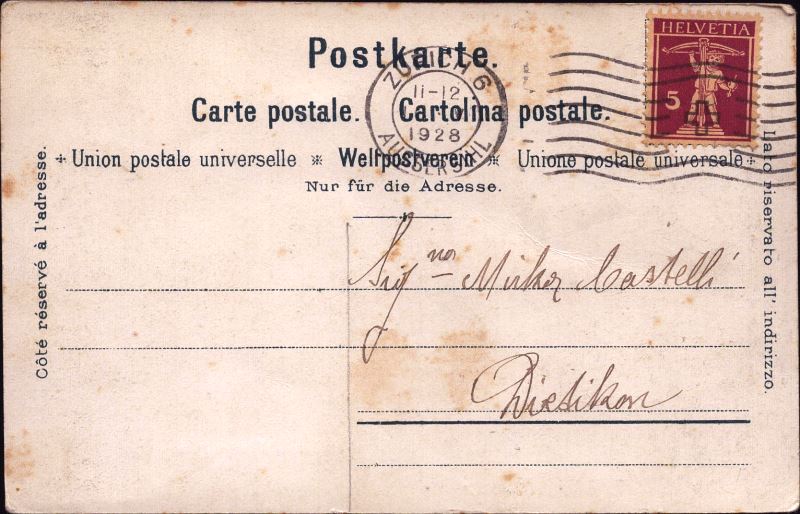 Postkarte.
HELVETIA
5
ZÜRICH 6
11-12
1928
AUSSERSIHL
Carte postale. Cartolina postale.
+ Union postale universelle ※ Weltpostverein ※ Unione postale universale +
Nur für die Adresse.
Côté réservé à l'adresse.
Lato riservato all' indirizzo.
Sig.nor Castelli
Dietikon